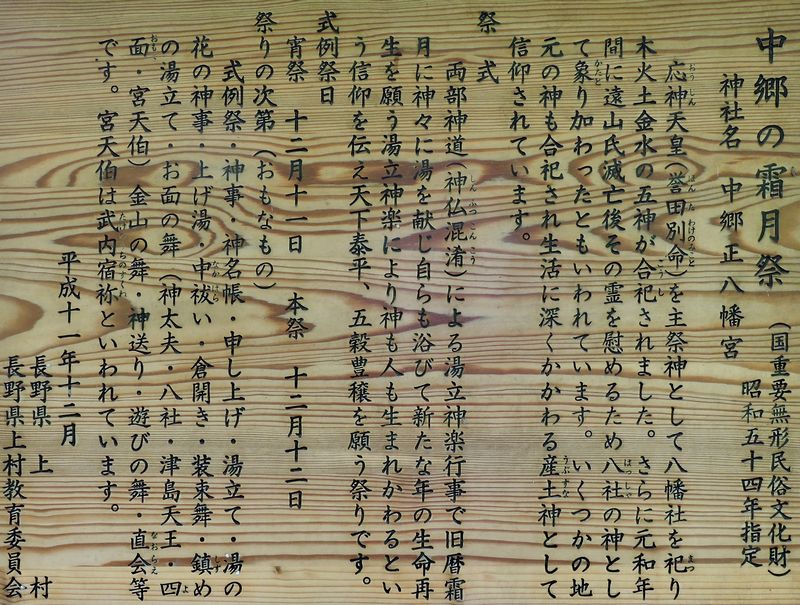 中郷の霜月祭
（国重要無形民俗文化財）
昭和五十四年指定
神社名　中郷正八幡宮
応神天皇（誉田別命）を主祭神として八幡社を祀り
木火土金水の五神が合祀されました。さらに元和年
間に遠山氏滅亡後その霊を慰めるため八社の神とし
て象り加わったともいわれています。いくつかの地
元の神も合祀され生活に深くかかわる産土神として
信仰されています。
祭式
両部神道（神仏混淆）による湯立神楽行事で旧暦霜
月に神々に湯を献じ自らも浴びて新たな年の生命再
生を願う湯立神楽により神も人も生まれかわるとい
う信仰を伝え天下泰平、五穀豊穣を願う祭りです。
式例祭日
宵祭　十二月十一日　本祭　十二月十二日
祭りの次第（おもなもの）
式例祭・神事・神名帳・申し上げ・湯立て・湯の
花の神事・上げ湯・中祓い・倉開き・装束舞・鎮め
の湯立て・お面の舞（神太夫・八社・津島天王・四
面・宮天伯）金山の舞・神送り・遊びの舞・直会等
です。宮天伯は武内宿祢といわれています。
平成十一年十二月
長野県上村
長野県上村教育委員会